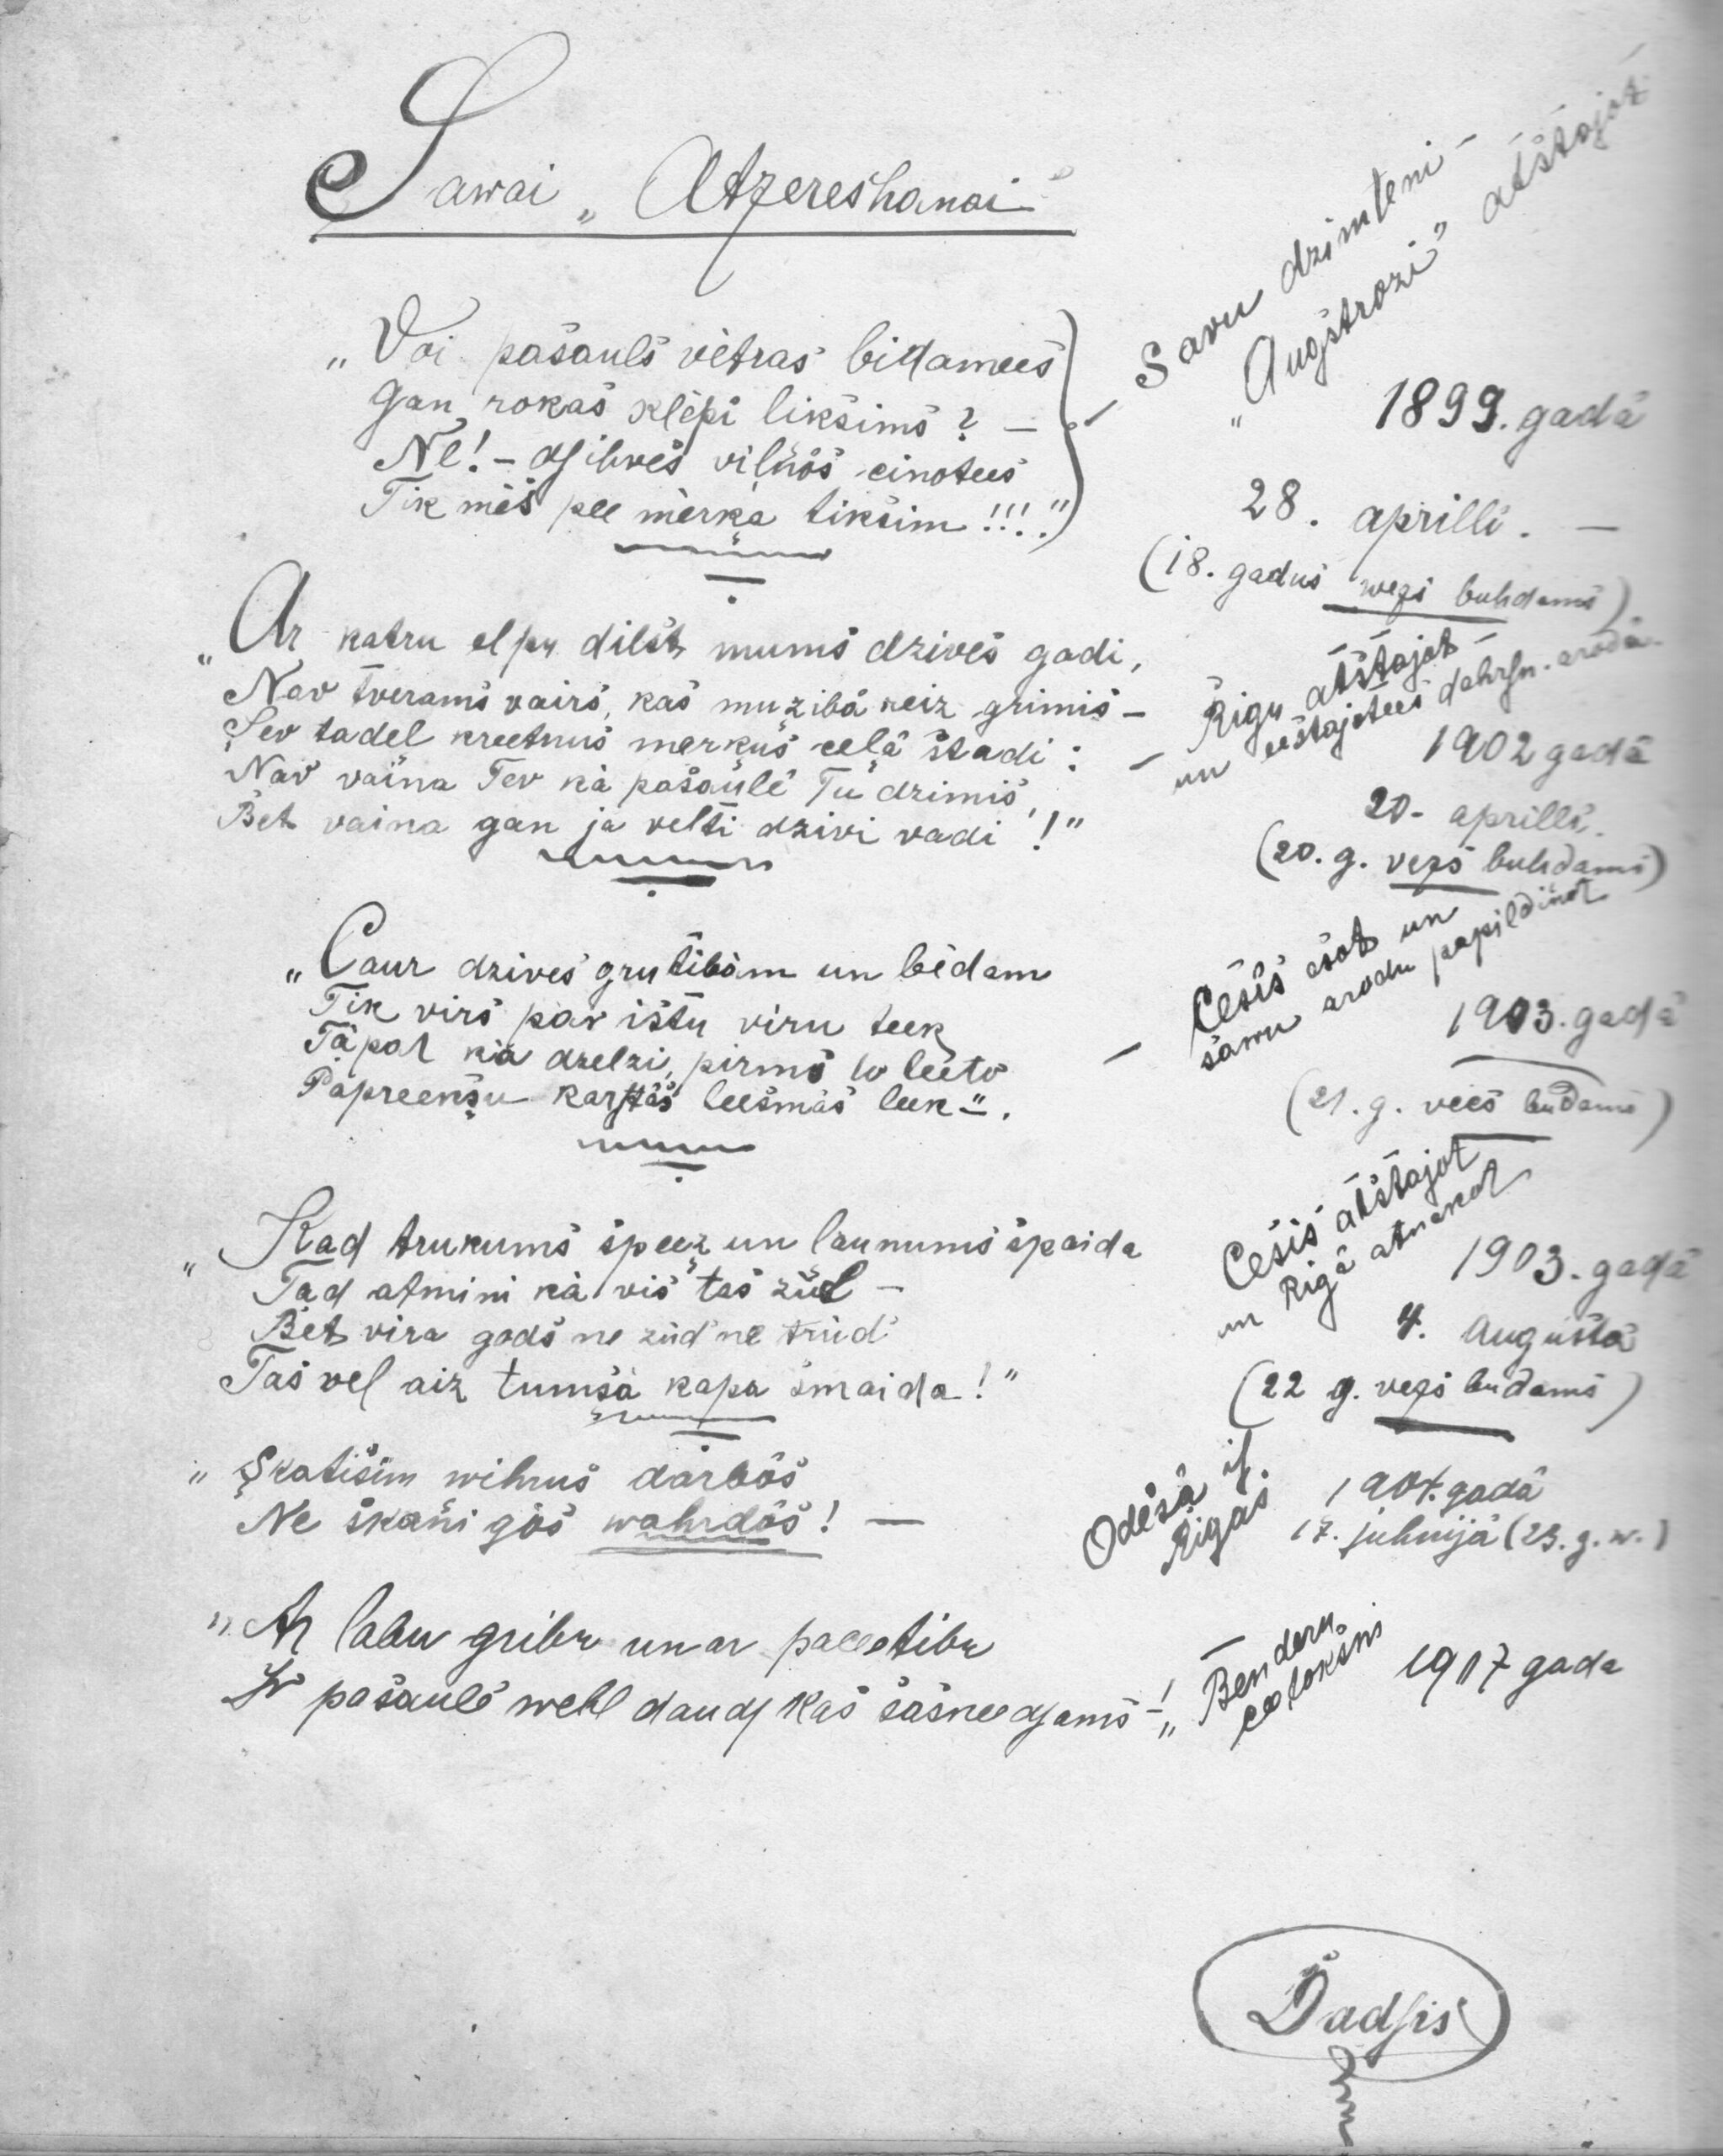 Sawai „Atzereshanai"
„Vai pašauls vètras bidamees
Gan rokas klèpi liksims? —
Nè! – dſihves viļņôs cinotees
Tik mès pee mèrķa tiksim!!!."
– Savu dzimteni –
„Augstrozi" atstajot
1899. gadâ
28. aprilli. —
(18. gadus wezs buhdams)
„Ar katru elpu dilst mums dzives gadi,
Nav tverams vairs, kas muzibâ reiz grimis –
Sev tadel kreetnus merķus eelâ stadi:
Nav vaina Tev kà pasaulè Tu dzimis,
Bet vaina gan ja velti dzivi vadi!"
– Rigu atstajot –
un eestajotees dahrſn. arodâ.
1902 gadâ
20. aprilli.
(20. g. vezs buhdams)
„Caur dzives grutibàm un bèdam
Tik virs par istu viru teek
Tàpat kà dzelzi, pirms to leeto
Papreekšu karstàs leesmàs leek".
– Cesîs esot un
sawu arodu papildinot
1903. gadâ
(21. g. vecs budams)
„Kad trukums speez un launums spaida
Tad atmini kà vis tas zûd –
Bet vira gods ne zûd ne trûd
Tas vel aiz tumsà kapa smaida!"
Cesis atstajot
un Rigâ atnakot
1903. gadâ
4. Augustâ
(22 g. vezs budams)
„Skatisim wihrus darbôs
Ne skaņigôs wahrdôs! —
Odesâ iſ
Rigas.
1904. gadâ
17. juhnijâ (23. g. w.)
„Ar labu gribu un ar pacetibu
Ir pasaulè wehl daudſ kas sasneedſams –!"
– Benderu
eetoksni
1917 gada
Dadſis